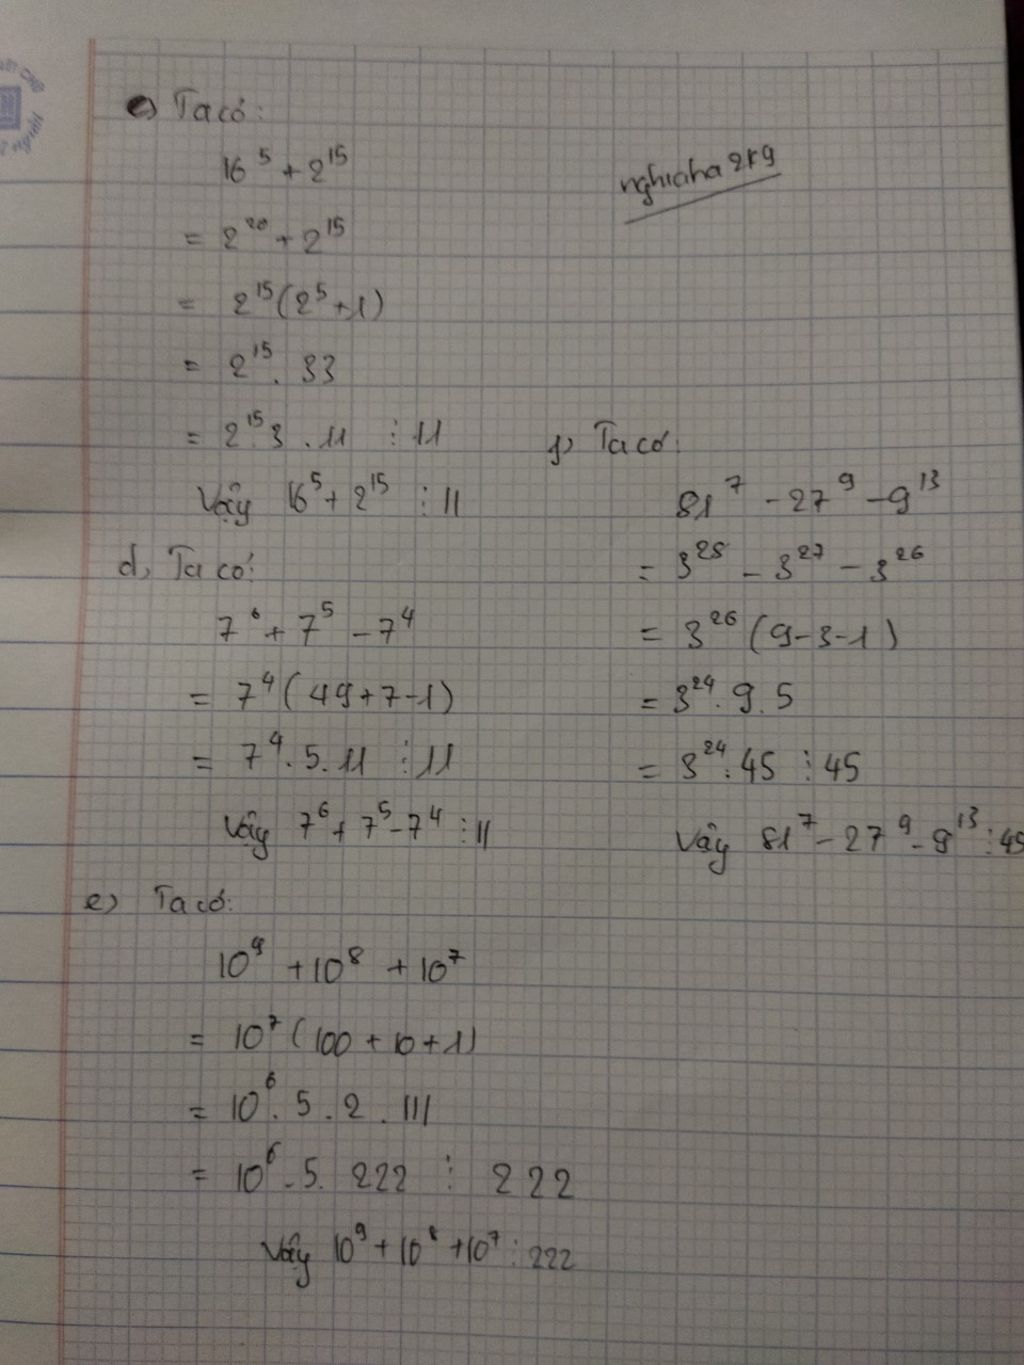 c) Ta có:
16^5 + 2^15
= 2^20 + 2^15
= 2^15(2^5+1)
= 2^15 . 33
= 2^15 3 . 11 ⋮ 11
Vậy 16^5 + 2^15 ⋮ 11
d, Ta có:
7^6 + 7^5 - 7^4
= 7^4 (49+7-1)
= 7^4 . 5 . 11 ⋮ 11
Vậy 7^6 + 7^5 - 7^4 ⋮ 11
e) Ta có:
10^9 + 10^8 + 10^7
= 10^7 (100 + 10 + 1)
= 10^6 . 5 . 2 . 111
= 10^6 . 5 . 222 ⋮ 222
Vậy 10^9 + 10^8 + 10^7 ⋮ 222
nghiaha2k9
f) Ta có:
81^7 - 27^9 - 9^13
= 3^28 - 3^27 - 3^26
= 3^26 (9-3-1)
= 3^24 . 9 . 5
= 3^24 . 45 ⋮ 45
Vậy 81^7 - 27^9 - 9^13 ⋮ 45